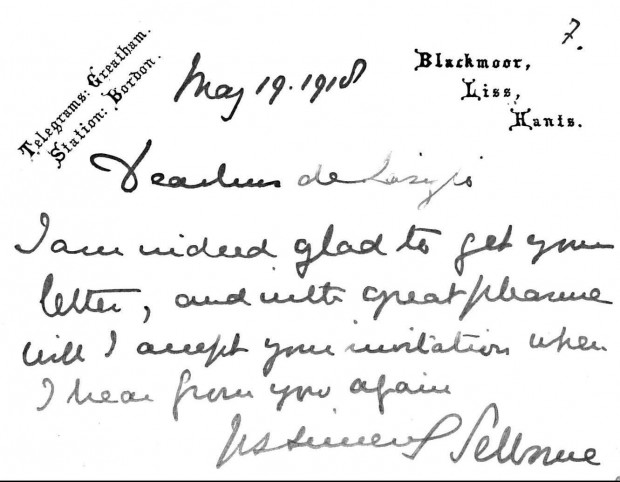 Telegrams: Greatham.
Station: Bordon.
7.
Blackmoor,
Liss,
Hants.
May 19. 1918
Dear Mrs de László
I am indeed glad to get your
letter, and with great pleasure
will I accept your invitation when
I hear from you again
Yrs sincerely Selborne